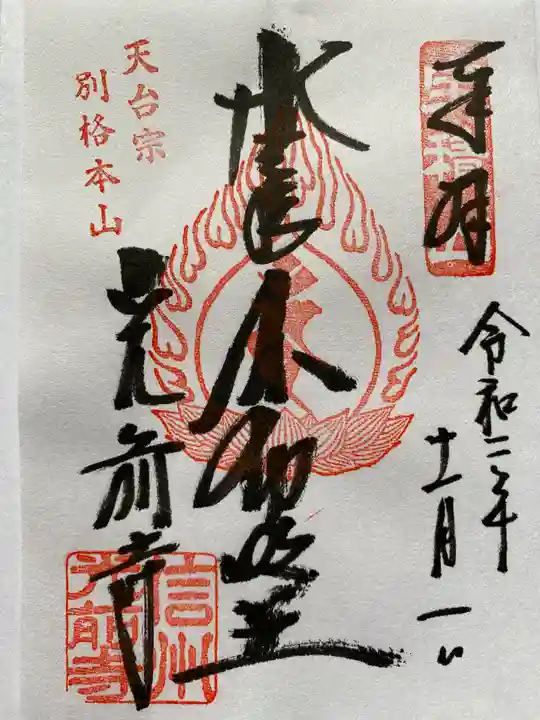 奉拝
令和二年
十一月一日
不動明王
天台宗
別格本山
光前寺
信州
光前寺